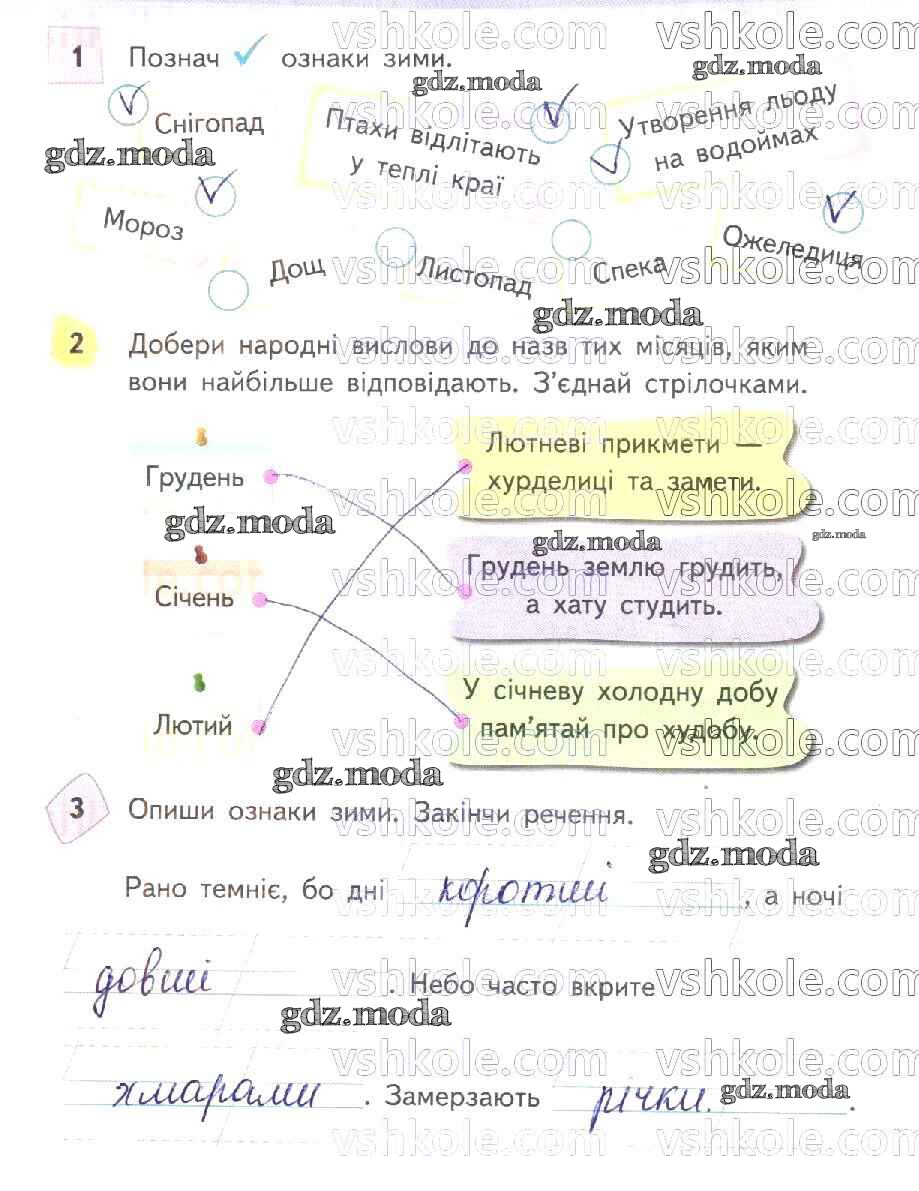 1 Познач ✓ ознаки зими.
Снігопад
Птахи відлітають
у теплі краї
Утворення льоду
на водоймах
Мороз
Дощ
Листопад
Спека
Ожеледиця
2 Добери народні вислови до назв тих місяців, яким
вони найбільше відповідають. З’єднай стрілочками.
Грудень
Січень
Лютий
Лютневі прикмети —
хурделиці та замети.
Грудень землю грудить,
а хату студить.
У січневу холодну добу
пам’ятай про худобу.
3 Опиши ознаки зими. Закінчи речення.
Рано темніє, бо дні короткі, а ночі
довші. Небо часто вкрите
хмарами. Замерзають річки.
vshkole.com
gdz.moda